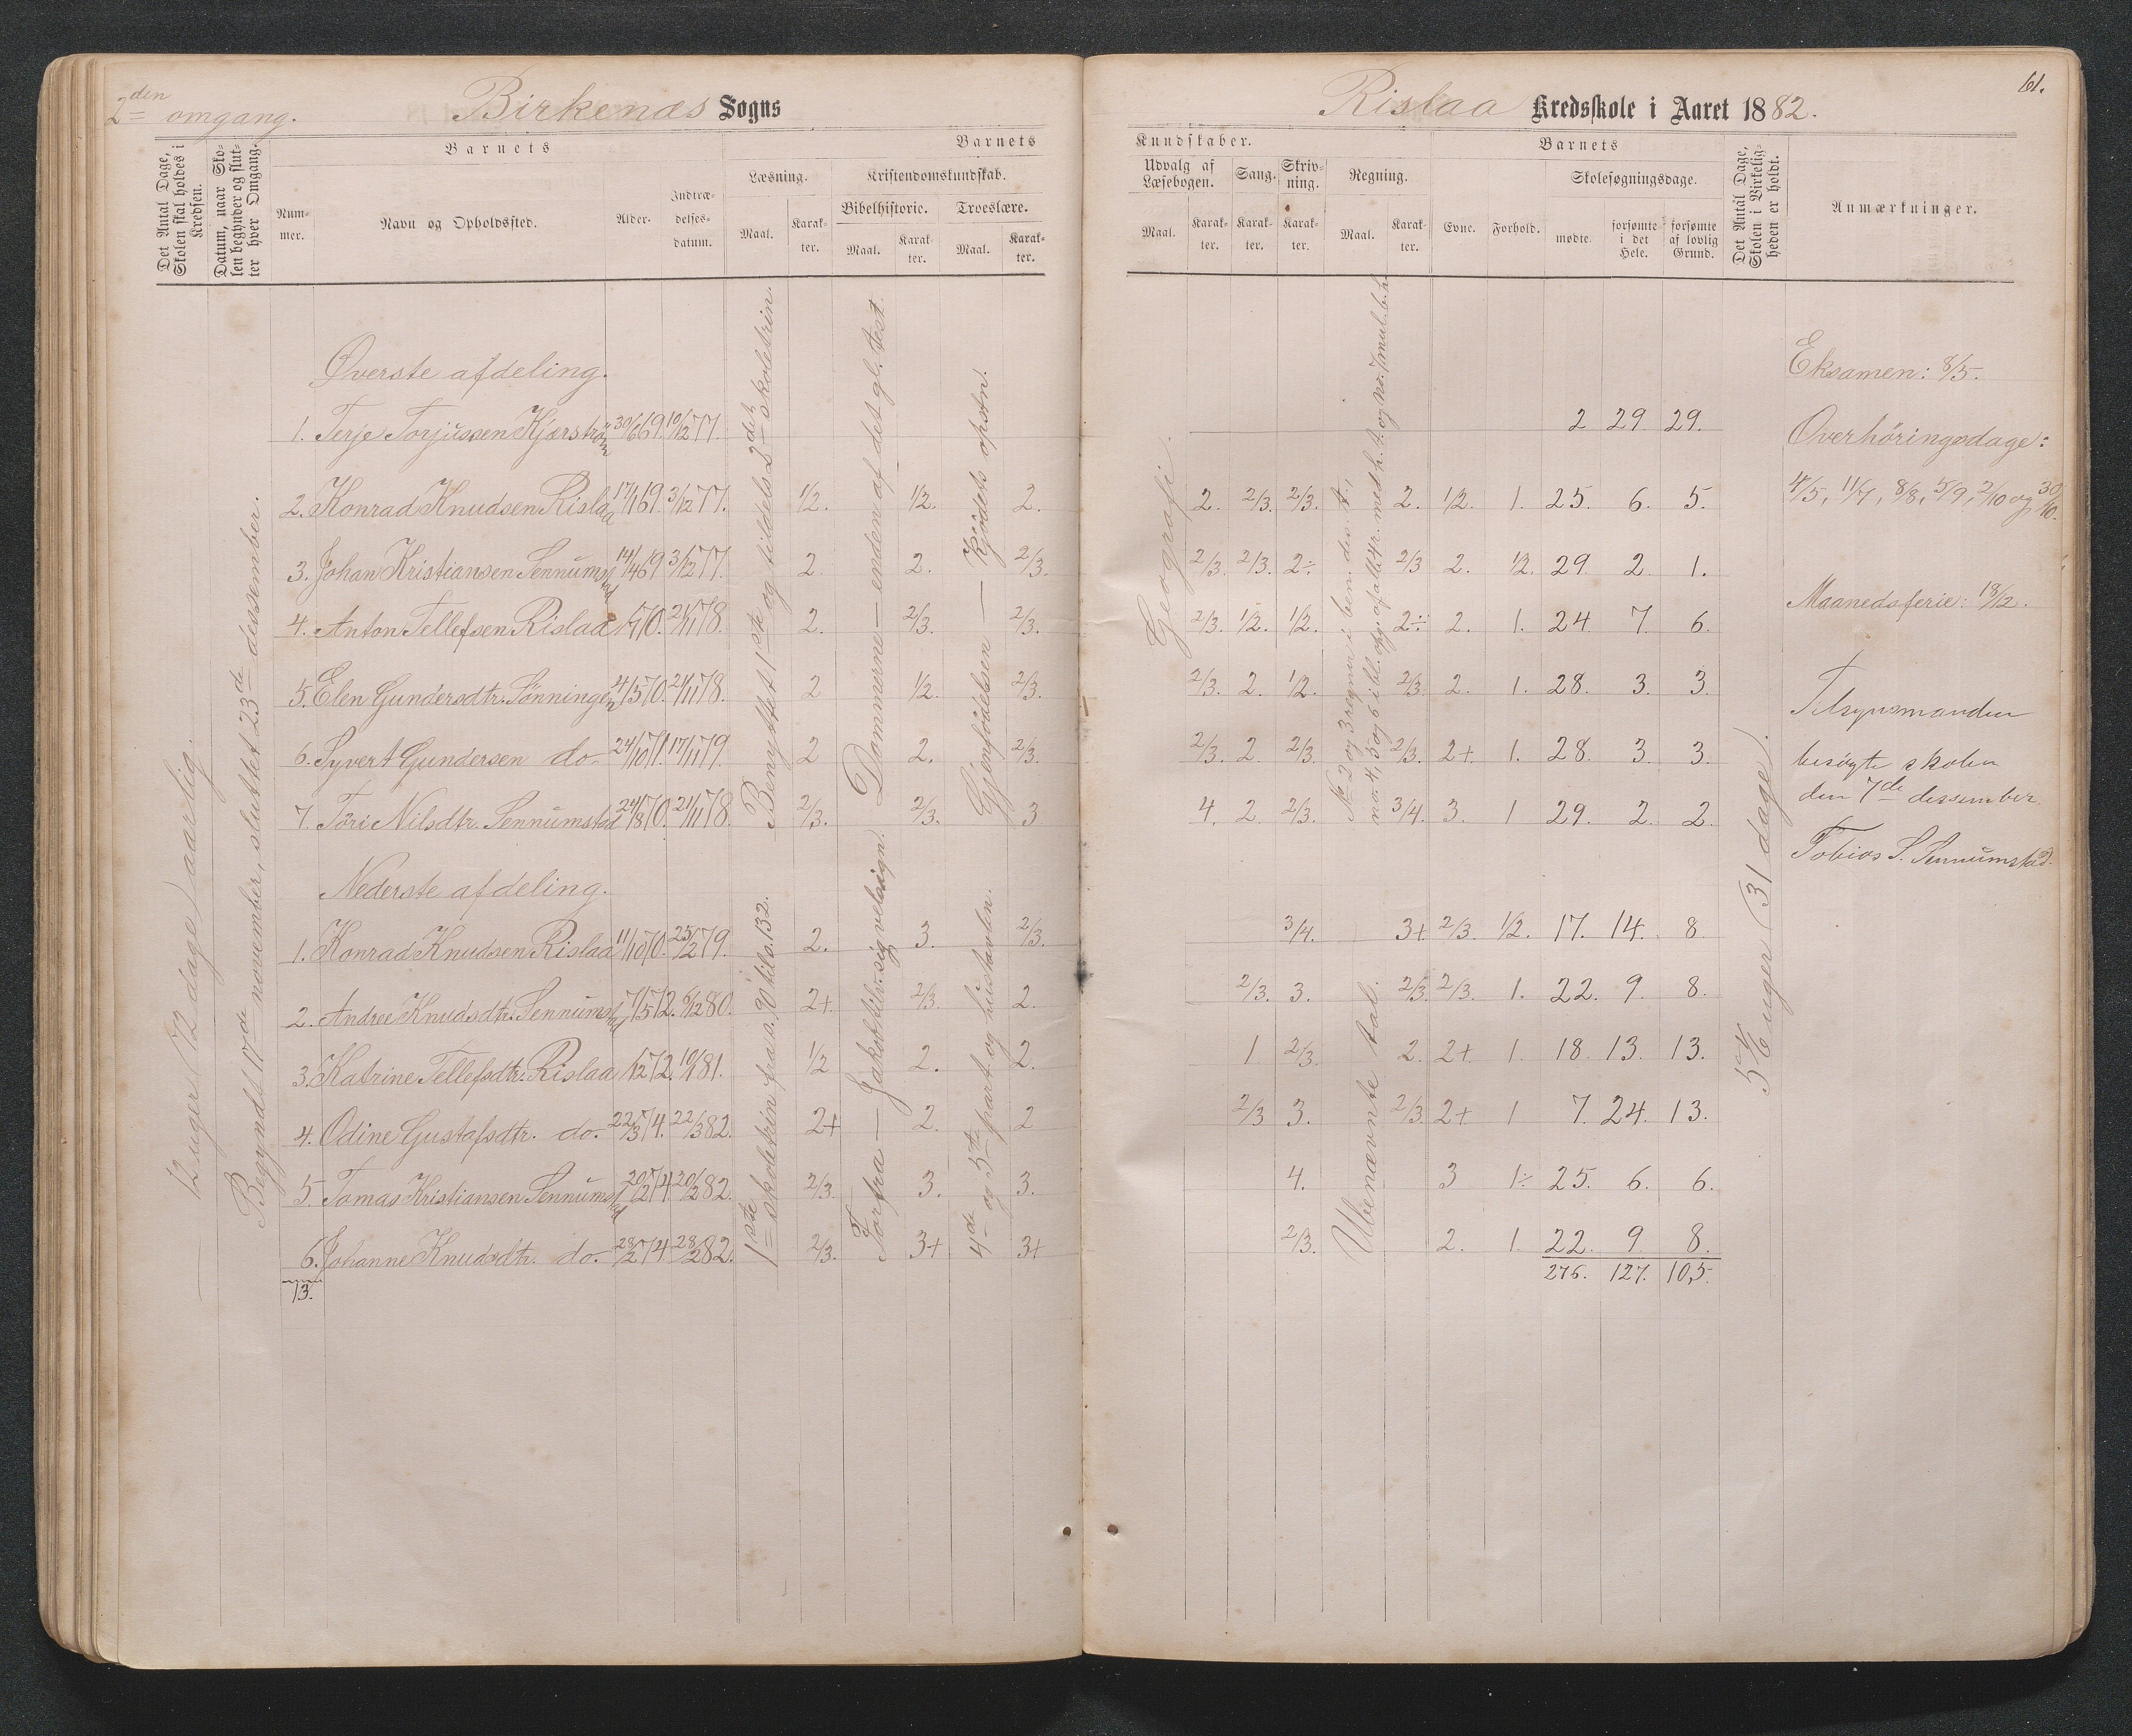 2den omgang.
Birkenæs Sogns
Det Antal Dage, Skolen skal holdes i Kredsen.
Datum, naar Skolen begynder og slutter hver Omgang.
Barnets
Barnets
Nummer.
Navn og Opholdssted.
Alder.
Indtrædelsesdatum.
Læsning.
Kristendomskundskab.
Bibelhistorie.
Troeslære.
Maal.
Karakter.
Maal.
Karakter.
Maal.
Karakter.
12 uger (72 dage) aarlig.
Begyndt 17de november, sluttet 23de dessember.
Øverste afdeling.
1. Terje Torjussen Kjærström 30/6 69. 10/2 77.
2. Konrad Knudsen Rislaa 17/1 69. 3/12 77. 1/2. 1/2. 2.
3. Johan Kristiansen Sennumstad 14/4 69 3/12 77. 2. 2. 2/3.
4. Anton Tellefsen Rislaa 1/7 70. 21/11 78. 2. 2/3. 2/3.
5. Elen Gundersdtr. Sønningen 4/5 70. 21/11 78. 2 1/2. 2/3.
6. Syvert Gundersen do. 24/10 71. 17/11 79. 2 2. 2/3.
7. Töri Nilsdtr. Sennumstad 24/8 70. 21/11 78. 2/3. 2/3. 3
Benyttet 1ste og tildels 2det skoletrin.
Dommerne — enden af det gl. test.
Gjenfödelsen — Kjödets opstn.
Nederste afdeling.
1. Konrad Knudsen Rislaa 11/10 70. 25/2 79. 2. 3. 2/3.
2. Andree Knudsdtr. Sennumstad 7/5 72. 6/2 80. 2+ 2/3. 2.
3. Katrine Tellefsdtr. Rislaa 1/2 72. 10/1 81. 1/2 2. 2.
4. Odine Gustafsdtr. do. 22/3 74. 22/3 82. 2+ 2. 2
5. Tomas Kristiansen Sennumstad 20/2 74 20/2 82. 2/3. 3. 3.
6. Johanne Knudsdtr. do. 28/2 74 28/2 82. 2/3. 3+ 3+
13.
1ste skoletrin fra s. 90 til s. 132.
Forfra — Jakob tilv. sig velsign.
4de og 5te part og hustavlen.
Rislaa Kredsskole i Aaret 1882.
61.
Kundskaber.
Barnets
Udvalg af Læsebogen.
Sang.
Skrivning.
Regning.
Skolesøgningsdage.
Maal.
Karakter.
Karakter.
Karakter.
Maal.
Karakter.
Evne.
Forhold.
mødte.
forsømte i det Hele.
forsømte af lovlig Grund.
Det Antal Dage, Skolen i Virkeligheden er holdt.
Anmærkninger.
Geografi.
2 29 29.
2. 2/3. 2/3. 2. 1/2. 1. 25. 6. 5.
2/3. 2/3. 2÷ 2/3 2. 1/2. 29. 2. 1.
2/3. 1/2. 1/2. 2÷ 2. 1. 24. 7. 6.
2/3. 2. 1/2. 2/3. 2. 1. 28. 3. 3.
2/3. 2. 2/3. 2/3. 2+. 1. 28. 3. 3.
4. 2. 2/3. 3/4. 3. 1 29. 2. 2.
3/4. 3+ 2/3. 1/2. 17. 14. 8.
2/3. 3. 2/3. 2/3. 1. 22. 9. 8.
1 2/3. 2. 2+. 1. 18. 13. 13.
2/3 3. 2/3. 2+ 1 7. 24. 13.
4. 3 1÷ 25. 6. 6.
2/3. 2. 1. 22. 9. 8.
276. 127. 105.
Ubenævnte tal.
5 1/6 uger (31 dage).
Eksamen: 8/5.
Overhöringsdage:
4/5, 11/7, 8/8, 5/9, 2/10 og 30/10.
Maanedsferie: 18/12.
Tilsynsmanden
besögte skolen
den 7de dessember.
Tobias S. Sennumstad.